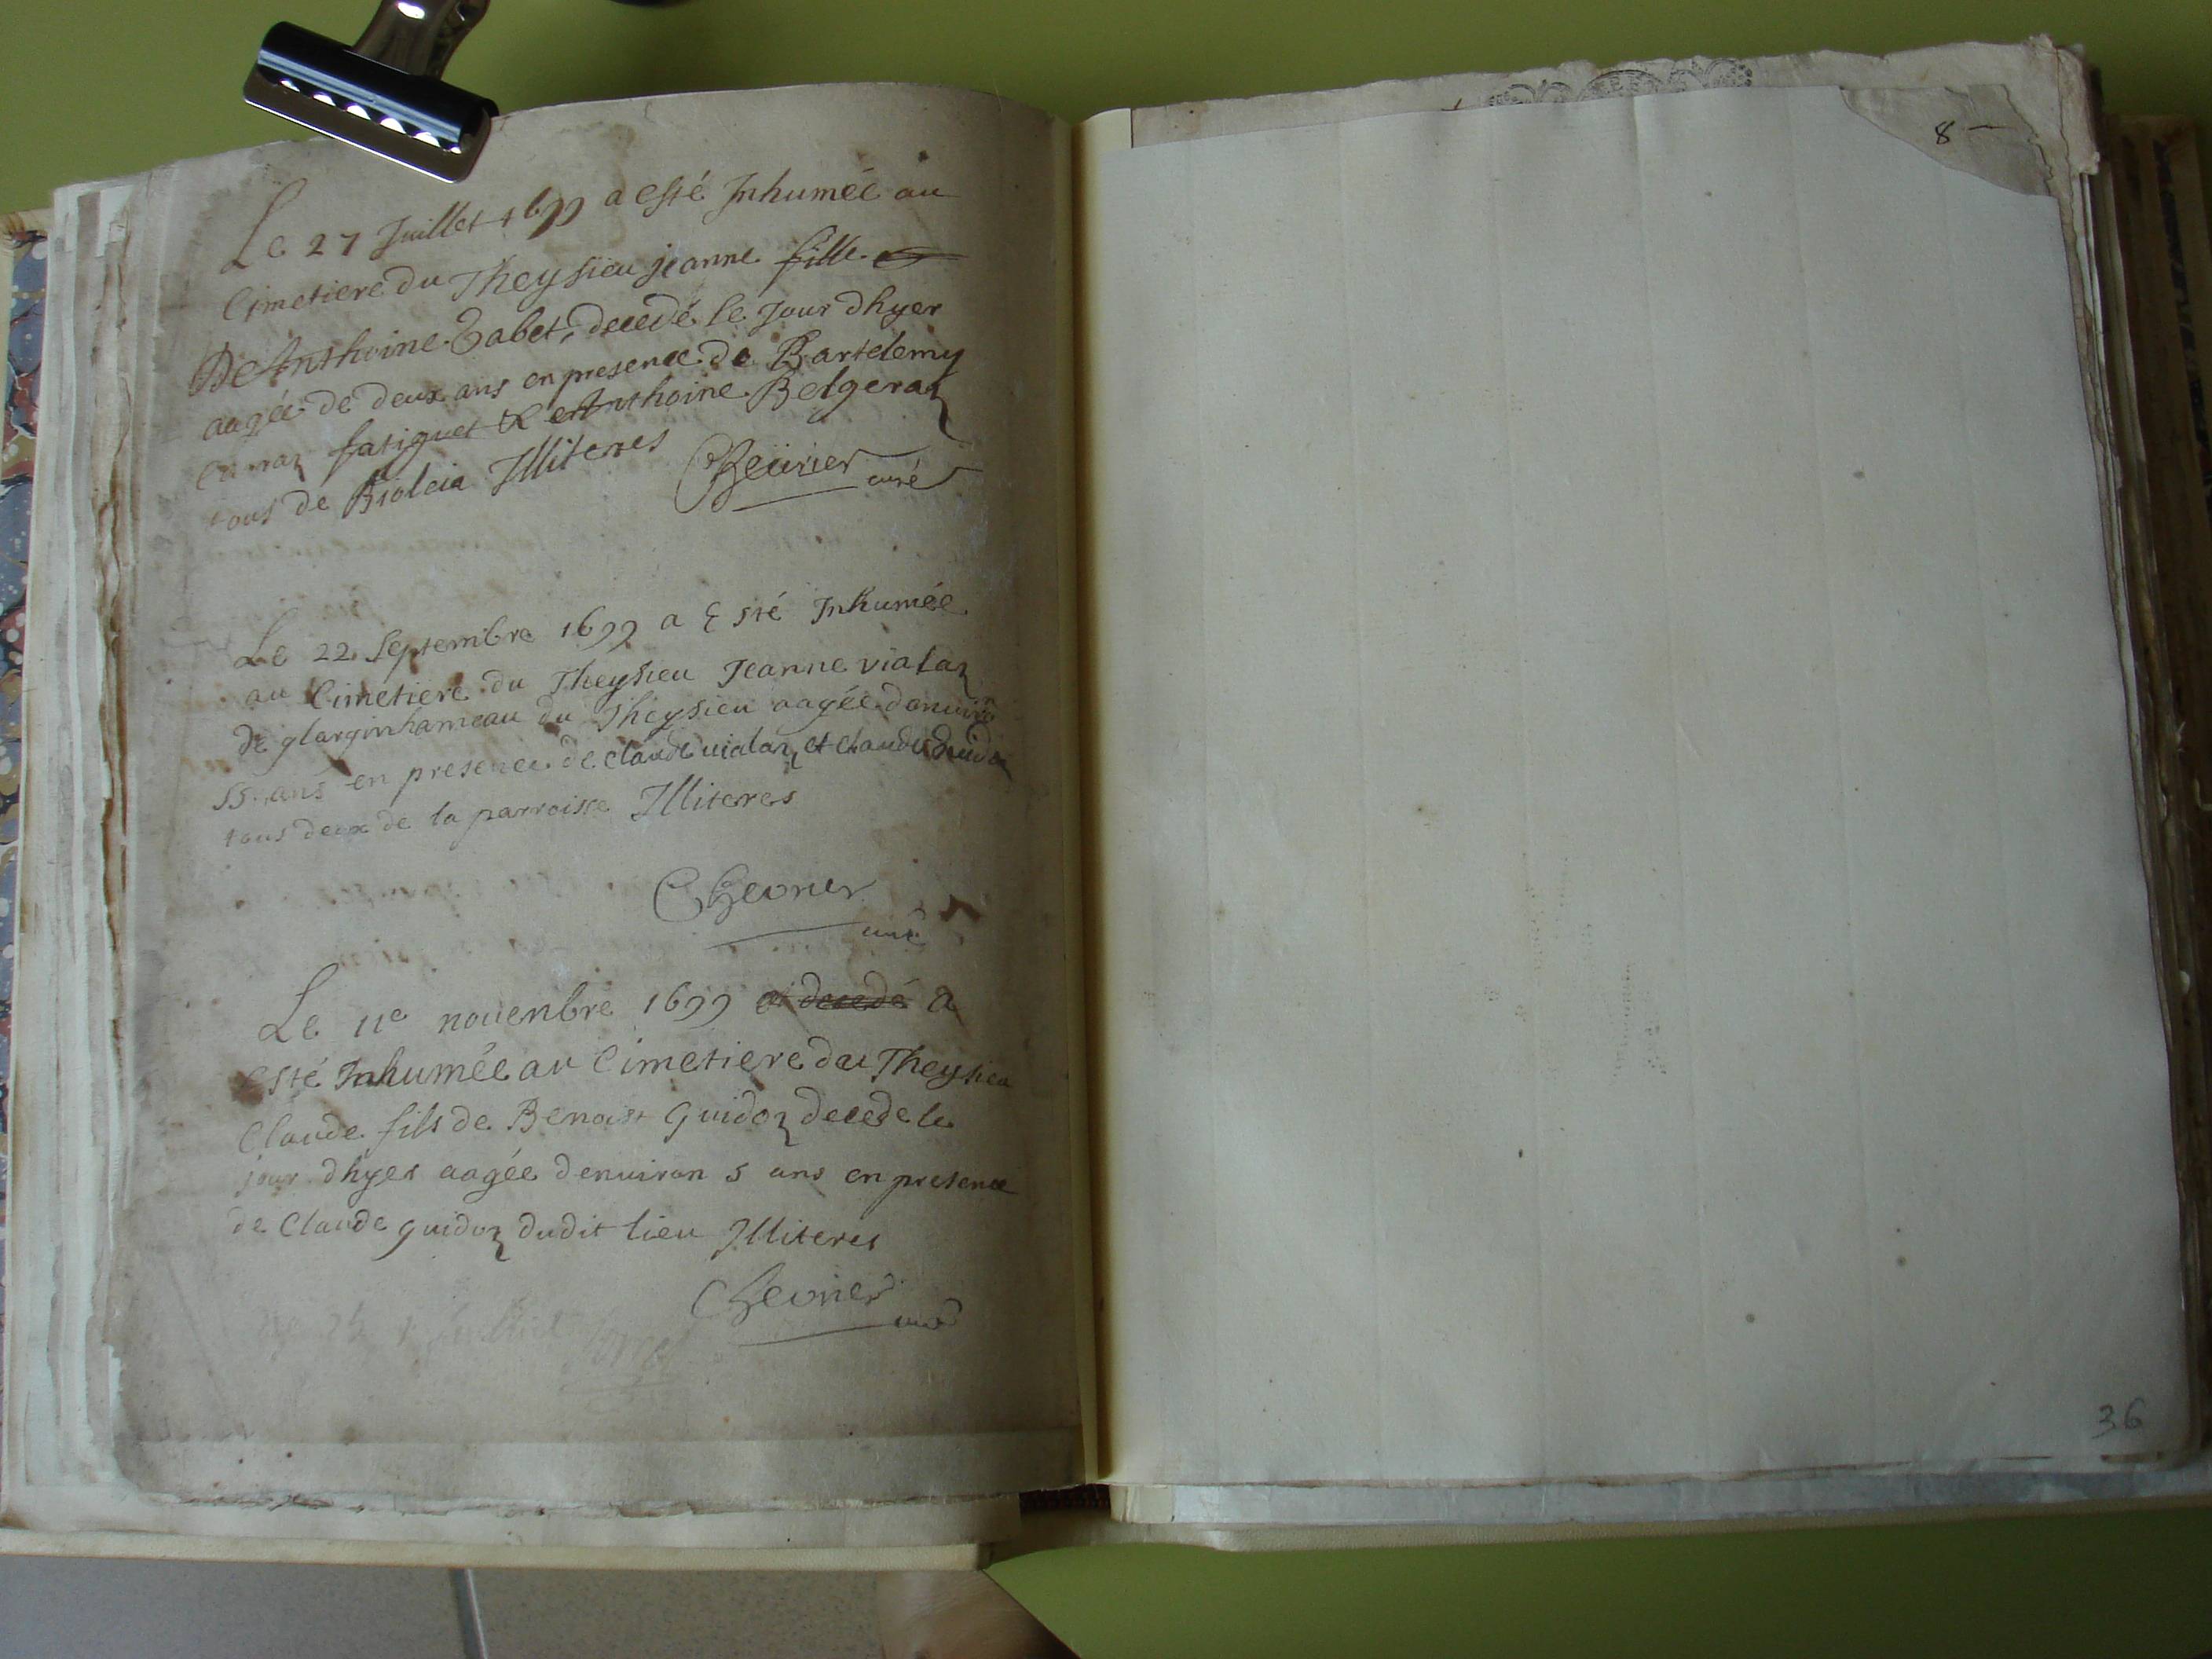 Le 27 Juillet 1699 a esté Inhumée au
Cimetiere du Theysieu jeanne fille
De Anthoine Tabet, decedé le Jour dhyer
aagée de deux ans en presence de Bartelemy
fatiguet & Anthoine Belgeraz
tous de Bioleia Illiteres
Cheurier curé
Le 22 Septembre 1699 a Esté Inhumée
au Cimetiere du Theysieu Jeanne vialaz
de glargin hameau du Theysieu aagée denuiron
55 ans en presence de claude uialaz et claude Guidoz
tous deux de la parroisse Illiteres
Chevrier
curé
Le 11e nouenbre 1699 a decedé a
esté Inhumée au Cimetiere du Theysieu
Claude fils de Benoist Guidoz decede le
jour dhyer aagée denuiron 5 ans en presence
de Claude guidoz dudit lieu Illiteres
Chevrier
curé
8
36